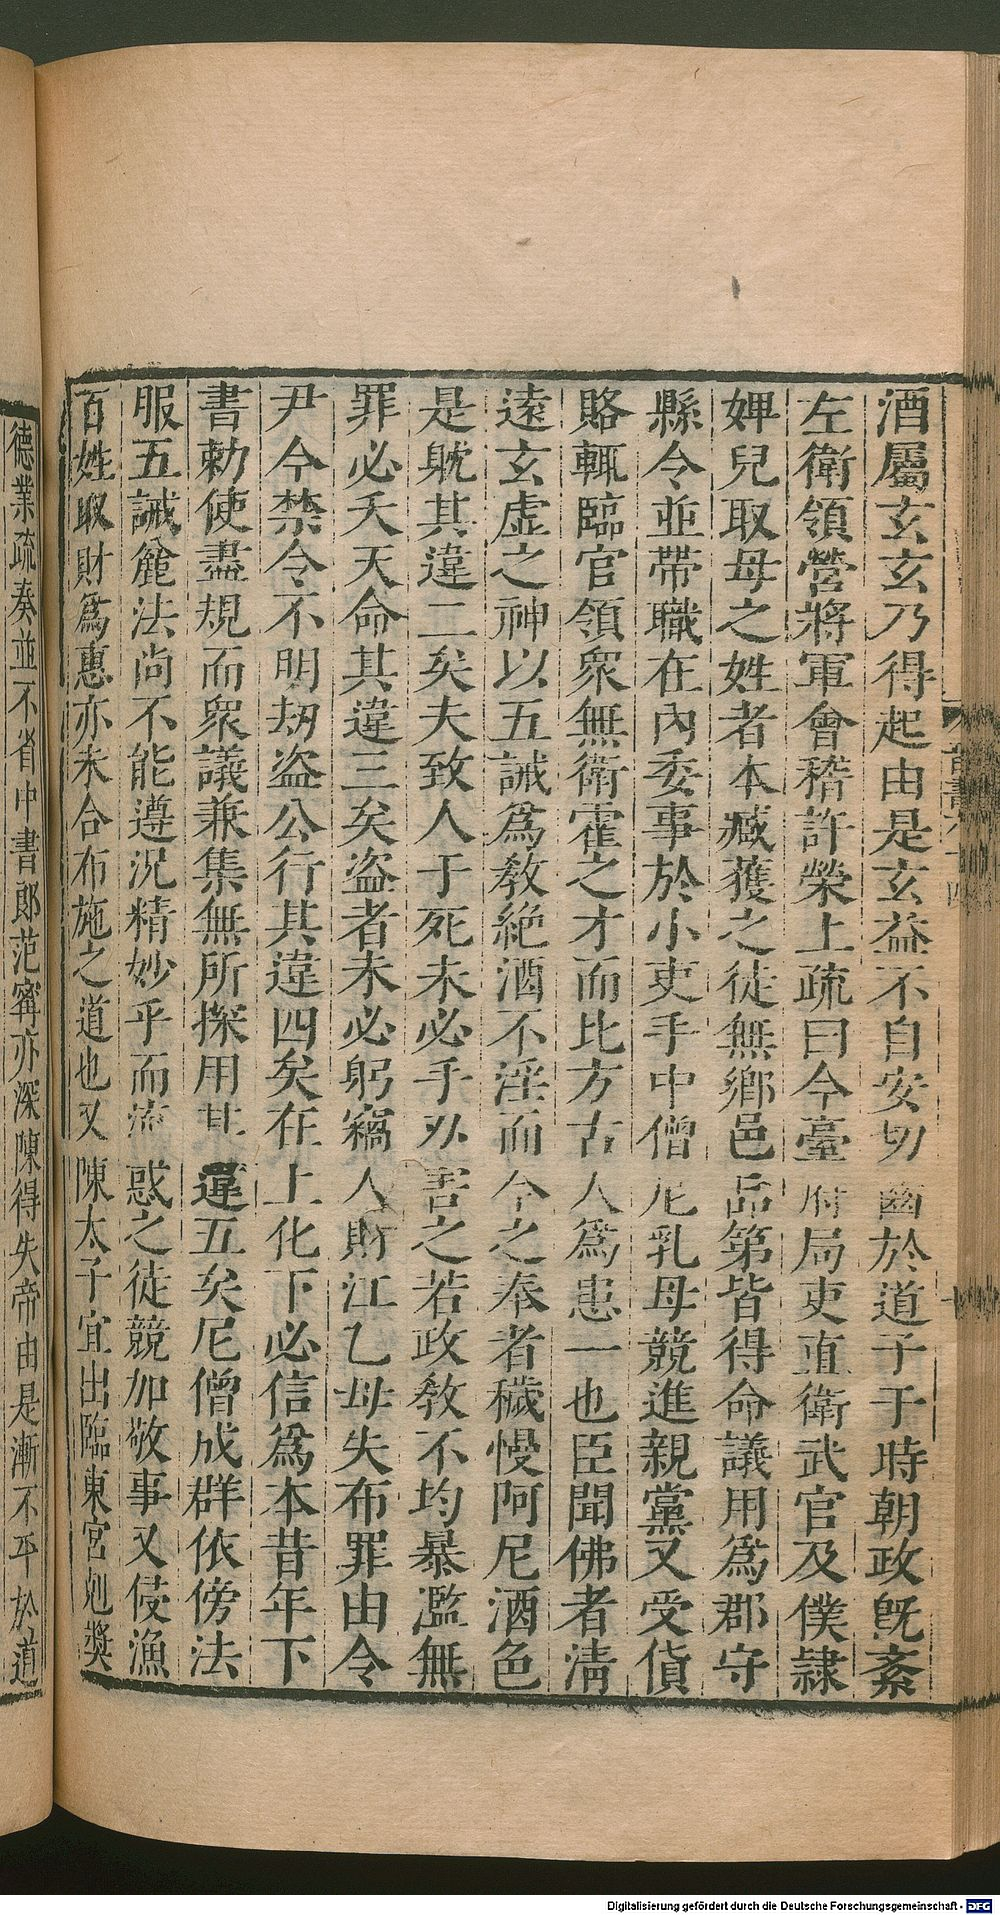 酒屬玄玄乃得起由是玄益不自安切齒於道子于時朝政旣紊
左衛領營將軍會稽許榮上疏曰今臺府局吏直衛武官及僕隷
婢兒取母之姓者本臧獲之徒無鄉邑品第皆得命議用爲郡守
縣令並帶職在內委事於小吏手中僧尼乳母競進親黨又受貨
賂輒臨官領衆無衛霍之才而比方古人爲患一也臣聞佛者清
遠玄虛之神以五誡爲敎絶酒不淫而今之奉者穢慢阿尼酒色
是躭其違二矣夫致人于死未必手刃害之若政敎不均暴濫無
罪必夭天命其違三矣盜者未必躬竊人財江乙母失布罪由令
尹今禁令不明劫盜公行其違四矣在上化下必信爲本昔年下
書勅使盡規而衆議兼集無所採用其違五矣尼僧成群依傍法
服五誡麄法尚不能遵況精妙乎而流惑之徒競加敬事又侵漁
百姓取財爲惠亦未合布施之道也又陳太子宜出臨東宮剋奬
德業疏奏並不省中書郎范甯亦深陳得失帝由是漸不平於道
Digitalisierung gefördert durch die Deutsche Forschungsgemeinschaft - DFG